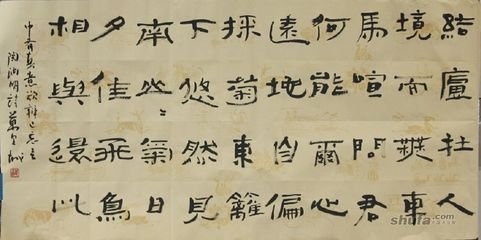 結廬在人
境而無車
馬喧問君
何能爾心
遠地自偏
採菊東籬
下悠然見
南山々氣日
夕佳飛鳥
相與還此
中有真意欲辨已忘言
陶淵明詩
shufa.com